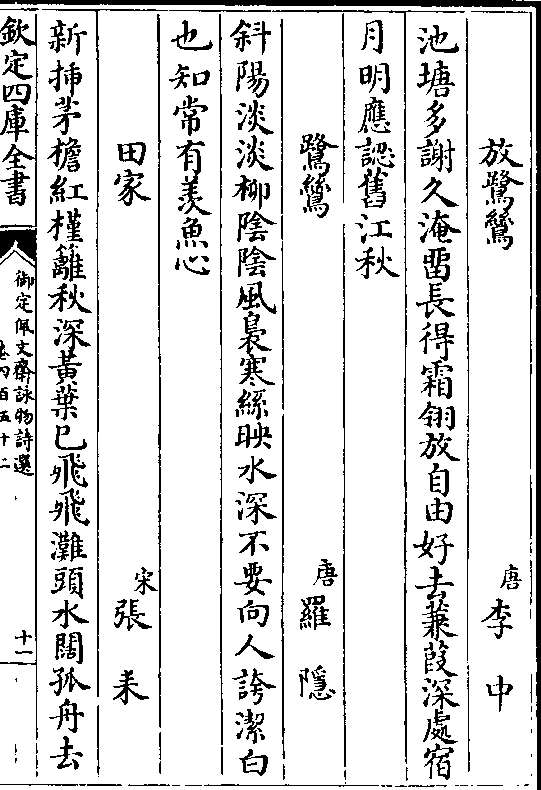 放鷺鷥　唐李中
池塘多謝久淹留長得霜翎放自由好去蒹葭深處宿
月明應認舊江秋
鷺鷥　唐羅隱
斜陽淡淡柳陰陰風裊寒絲映水深不要向人誇潔白
也知常有羨魚心
田家　宋張耒
新插茅檐紅槿籬秋深黃葉已飛飛灘頭水闊孤舟去
欽定四庫全書　御定佩文齋詠物詩選
卷四百五十二　十一